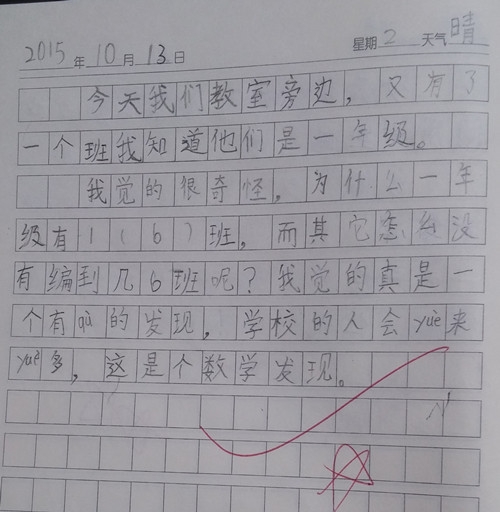 2015年10月13日 星期2 天气晴
今天我们教室旁边，又有了
一个班我知道他们是一年级。
我觉的很奇怪，为什么一年
级有1(6)班，而其它怎么没
有编到几6班呢？我觉的真是一
个有qù的发现，学校的人会yuè来
yuè多，这是个数学发现。